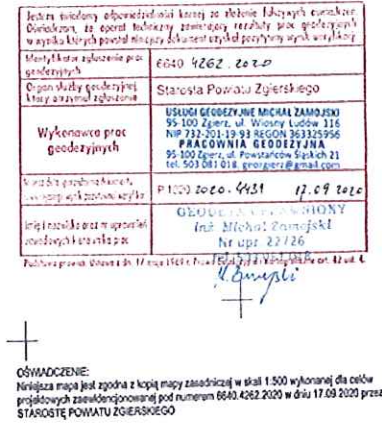 Jestem świadomy odpowiedzialności karnej za złożenie fałszywych
Oświadczam, że operat techniczny zawierający rezultaty prac geodezyjnych
w wyniku których powstał niniejszy dokument uzyskał pozytywny wynik weryfikacji
Identyfikator zgłoszenia prac geodezyjnych
6640 4262.2020
Organ służby geodezyjnej który otrzymał zgłoszenie
Starosta Powiatu Zgierskiego
Wykonawca prac geodezyjnych
USŁUGI GEODEZYJNE MICHAŁ ZAMOJSKI
95-100 Zgierz, ul. Wiosny Ludów 116
NIP 732-201-19-93 REGON 363325956
PRACOWNIA GEODEZYJNA
95-100 Zgierz, ul. Powstańców Śląskich 21
tel. 503 081 018, georgierz@gmail.com
2020.4431 17.09 2020
GEODETA
inż. Michał Zamojski
Nr upr. 22726
OŚWIADCZENIE:
Niniejsza mapa jest zgodna z kopią mapy zasadniczej w skali 1:500 wykonanej dla celów
projektowych zaewidencjonowanej pod numerem 6640.4262.2020 w dniu 17.09.2020 przez
STAROSTĘ POWIATU ZGIERSKIEGO